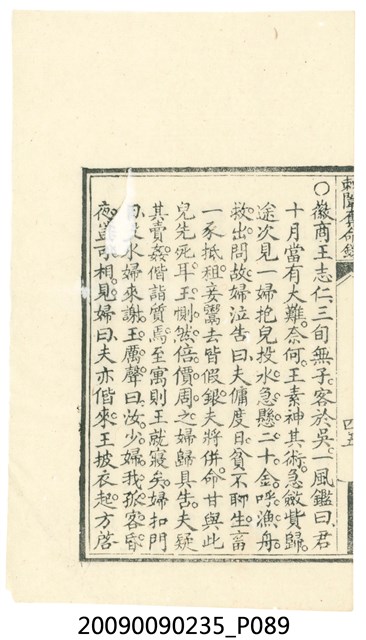 ○徽商王志仁、三旬無子、客於吳、一風鑑曰、君
十月當有大難、奈何、王素神其術、急斂貲歸、
途次見一婦抱兒投水、急懸二十金、呼漁舟
救出、問故、婦泣告曰、夫傭度日、貧不聊生、畜
一豕抵租、妾鬻去、皆假銀、夫將併命、甘與此
兒先死耳、王惻然、倍價周之、婦歸具告、夫疑
其賣姦、偕詣質焉、至寓則王就寢矣、婦扣門
曰、投水婦來謝、王厲聲曰、汝少婦、我孤客、昏
夜豈可相見、婦曰、夫亦偕來、王披衣起、方啓
20090090235_P089